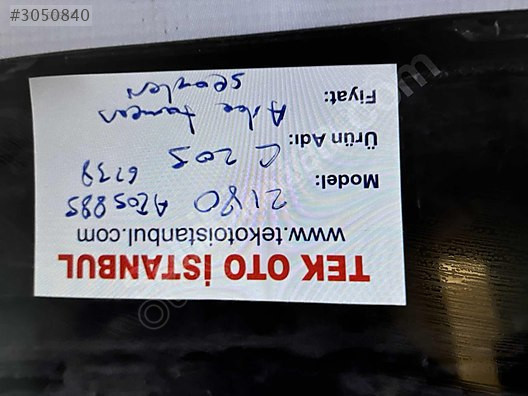 #3050840
TEK OTO İSTANBUL
www.tekotoistanbul.com
Model: 2180 A205885
6238
Ürün Adı: C 205
Arka tampon
Fiyat: